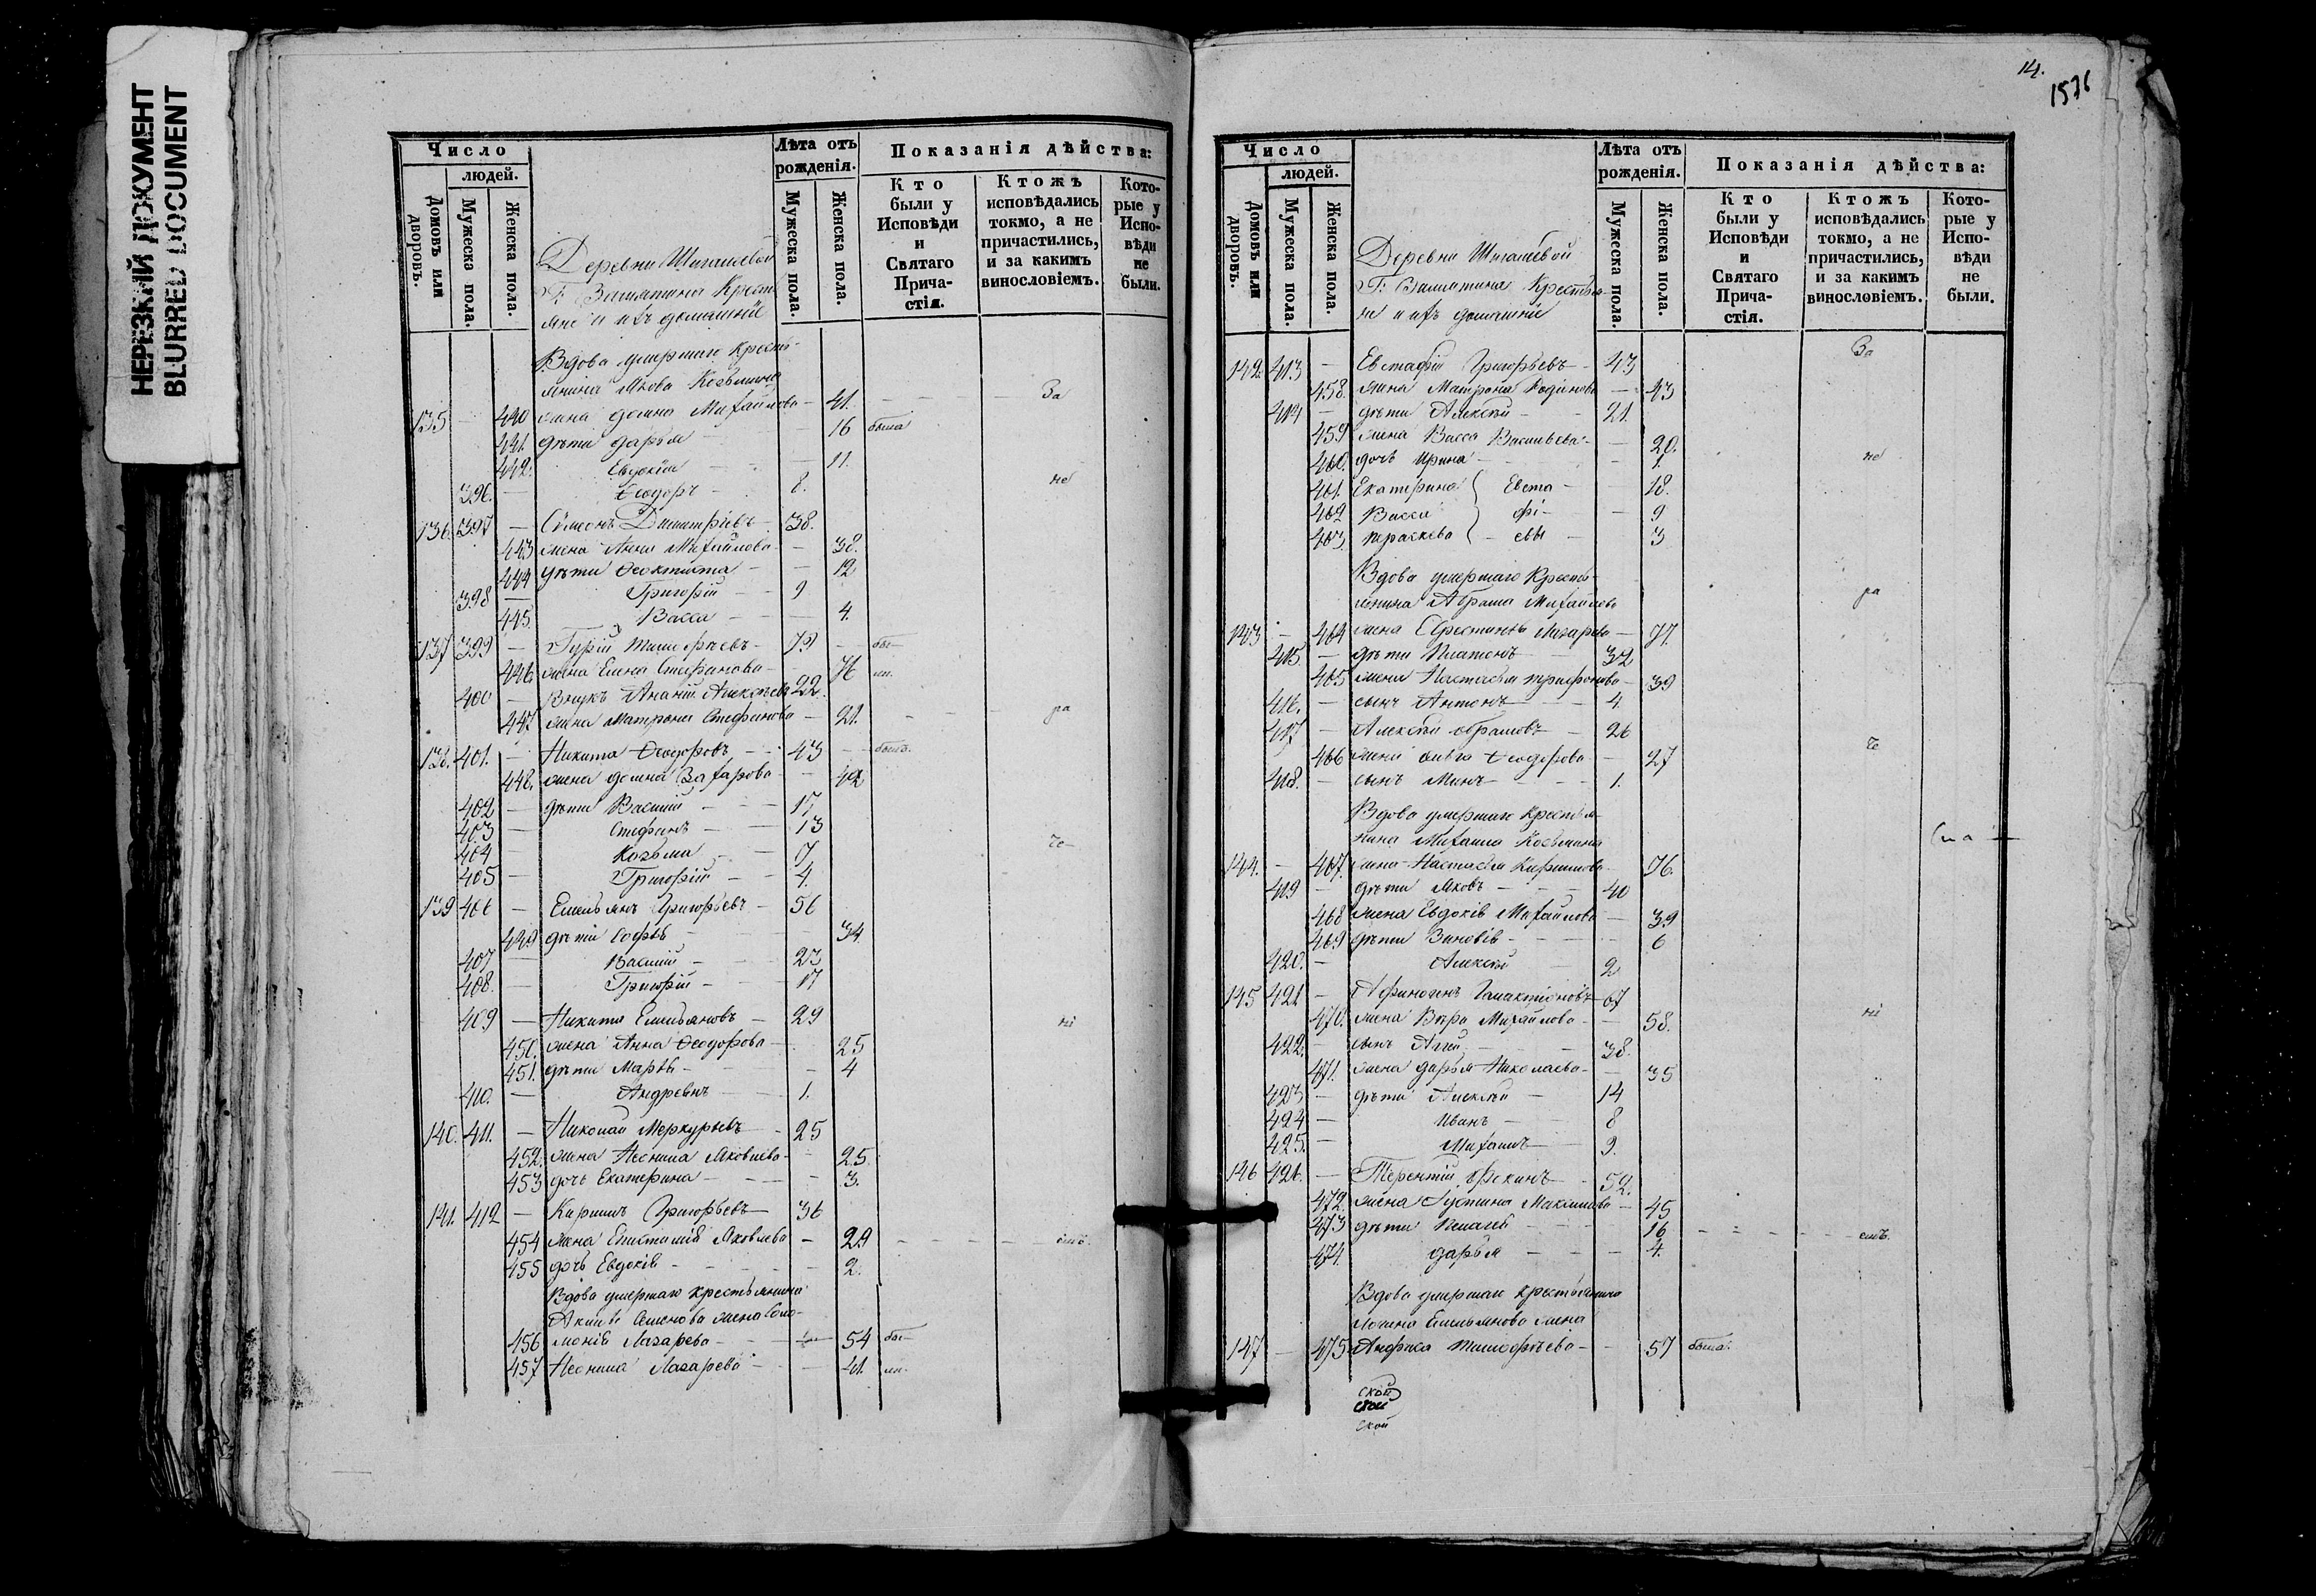 НЕРЕЗКИЙ ДОКУМЕНТ
BLURRED DOCUMENT
Число
людей.
Домовъ или дворовъ.
Мужеска пола.
Женска пола.
Деревни Шигалевой
Г: Замятина Крестья
яне и ихъ домашнiе
Лѣта отъ рожденія.
Мужеска пола.
Женска пола.
Показанія дѣйства:
Кто были у Исповѣди и Святаго Причастія.
Ктожъ исповѣдались токмо, а не причастились, и за какимъ винословіемъ.
Которые у Исповѣди не были.
Вдова умершаго Кресть-
янина Якова Козьмина
135 - 440 жена домна Михайлова - 41. - - За
441. дѣти дарья - 16 была
442. Евдокія - 11.
396. - Ѳеодоръ - 8. не
136. 397 - Симеонъ Димитріевъ - 38.
443 жена Анна Михайлова - 38.
444 дѣти Ѳеоктиста - 12
398 - Григорій - 9
445. Васса - 4.
137 399 - Гурій Тимофѣевъ - 79 - бы-
446. жена Елена Стефанова - 76 ли.
400 - Внукъ Ананій Алексѣевъ 22.
447. жена Матрона Стефанова - 21. - ра
138. 401. - Никита Ѳеодоровъ - 43 - былъ.
448. жена домна Захарова - 42
402 - дѣти Василій - 17
403 - Стефанъ - 13
404 - Козьма - 7 че-
405 - Григорій - 4.
139 406 - Емельянъ Григорьевъ - 56
449 дѣти Софья - 34
407 - Василій - 23
408. - Григорій - 17
409 - Никита Емельяновъ - 29 ні
450. жена Анна Ѳеодорова - 25
451. дѣти Марья - 4
410. - Андреянъ - 1.
140. 411. - Николай Меркурьевъ - 25
452. жена Неонила Яковлева - 25.
453 дочь Екатерина - 3.
141. 412 - Кирилъ Григорьевъ - 36
454 жена Епистимія Яковлева - 29 - - - - емъ.
455 дочь Евдокія - 2.
Вдова умершаго крестьянина
Акима Семенова жена Соло-
456 монія Лазарева - 54 бы-
457 Неонила Лазарева - 41. ли.
14.
1576
Число
людей.
Домовъ или дворовъ.
Мужеска пола.
Женска пола.
Деревни Шигалевой
Г: Замятина Крестья-
не и ихъ домашнiе
Лѣта отъ рожденія.
Мужеска пола.
Женска пола.
Показанія дѣйства:
Кто были у Исповѣди и Святаго Причастія.
Ктожъ исповѣдались токмо, а не причастились, и за какимъ винословіемъ.
Которые у Исповѣди не были.
142. 413 - Евстафій Григорьевъ - 43 За
458. жена Матрона Родіонова - 43
414 - дѣти Алексѣй - 21.
459 жена Васса Васильева - 20.
460. дочь Ирина - 1. не
461. Екатерина Евста - 18.
462 Васса фі- - 9
463 параскева - евы - 3
Вдова умершаго Кресть-
янина Абрама Михайлова ра
143 - 464 жена Лазарева - 77.
415. - дѣти Платонъ - 32
465 жена Настасья трифонова - 39
416. - сынъ Антонъ - 4
417 - Алексѣй абрамовъ - 26
466 жена Ѳеодорова - 27 че
418. - сынъ Минъ - 1.
Вдова умершаго крестья-
нина Михаила Козьмина
144. - 467. жена Настасья Кирилова 76.
419 - дѣти Яковъ - 40
468 жена Евдокія Михайлова - 39
469 дѣти Зиновія - 6
420. - Алексѣй 2
145 421 - Афиногенъ Галактіоновъ - 67
470. жена Вѣра Михайлова - 58. ні
422. - сынъ Аггей - 38.
471. жена дарья Николаева - 35
423 - дѣти Алексѣй - 14
424 - Иванъ - 8
425. - Михаилъ - 9.
146 426. - Терентій - 52.
472. жена Іустина Максимова - 45
473 дѣти Пелагея - 16 - - - - емъ.
474. дарья - 4.
Вдова умершаго крестьянина
Логина Емельянова жена
147 - 475 Анфиса Тимофѣева - 57 была.
ской
ской
ской